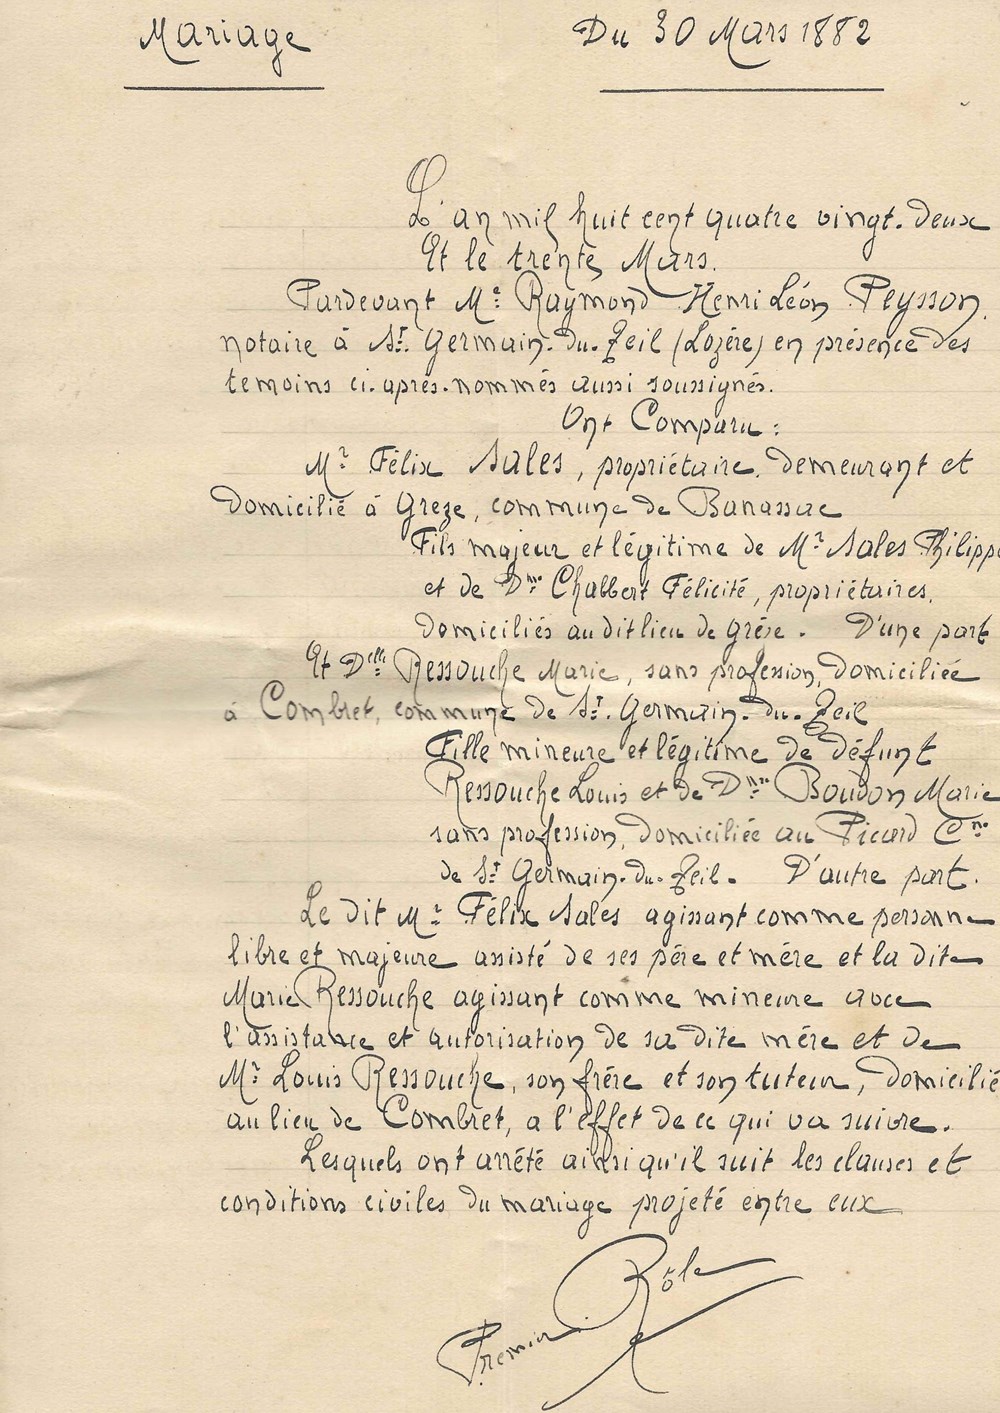 Mariage
Du 30 Mars 1882
L'an mil huit cent quatre vingt-deux
Et le trente Mars.
Pardevant Me Raymond Henri Léon Peysson,
notaire à St. Germain-du-Teil (Lozère) en présence des
temoins ci-après-nommés aussi soussignés.
Ont Comparu :
Mr Félix Sales, propriétaire, demeurant et
domicilié à Greze, commune de Banassac
Fils majeur et légitime de Mr Sales Philippe
et de Dme Chabbert Félicité, propriétaires,
domiciliés audit lieu de Grése. D'une part
Et Dlle Ressouche Marie, sans profession, domiciliée
à Combret, commune de St. Germain-du-Teil
Fille mineure et légitime de défunt
Ressouche Louis et de Dme Boudon Marie
sans profession, domiciliée au Picard Cne
de St Germain-du-Teil. D'autre part.
Le dit Mr Félix Sales agissant comme personne
libre et majeure assisté de ses père et mère et la dite
Marie Ressouche agissant comme mineure avec
l'assistance et autorisation de sa dite mère et de
Mr Louis Ressouche, son frère et son tuteur, domicilié
au lieu de Combret, a l'effet de ce qui va suivre.
Lesquels ont arrêté ainsi qu'il suit les clauses et
conditions civiles du mariage projeté entre eux
Premier Rôle